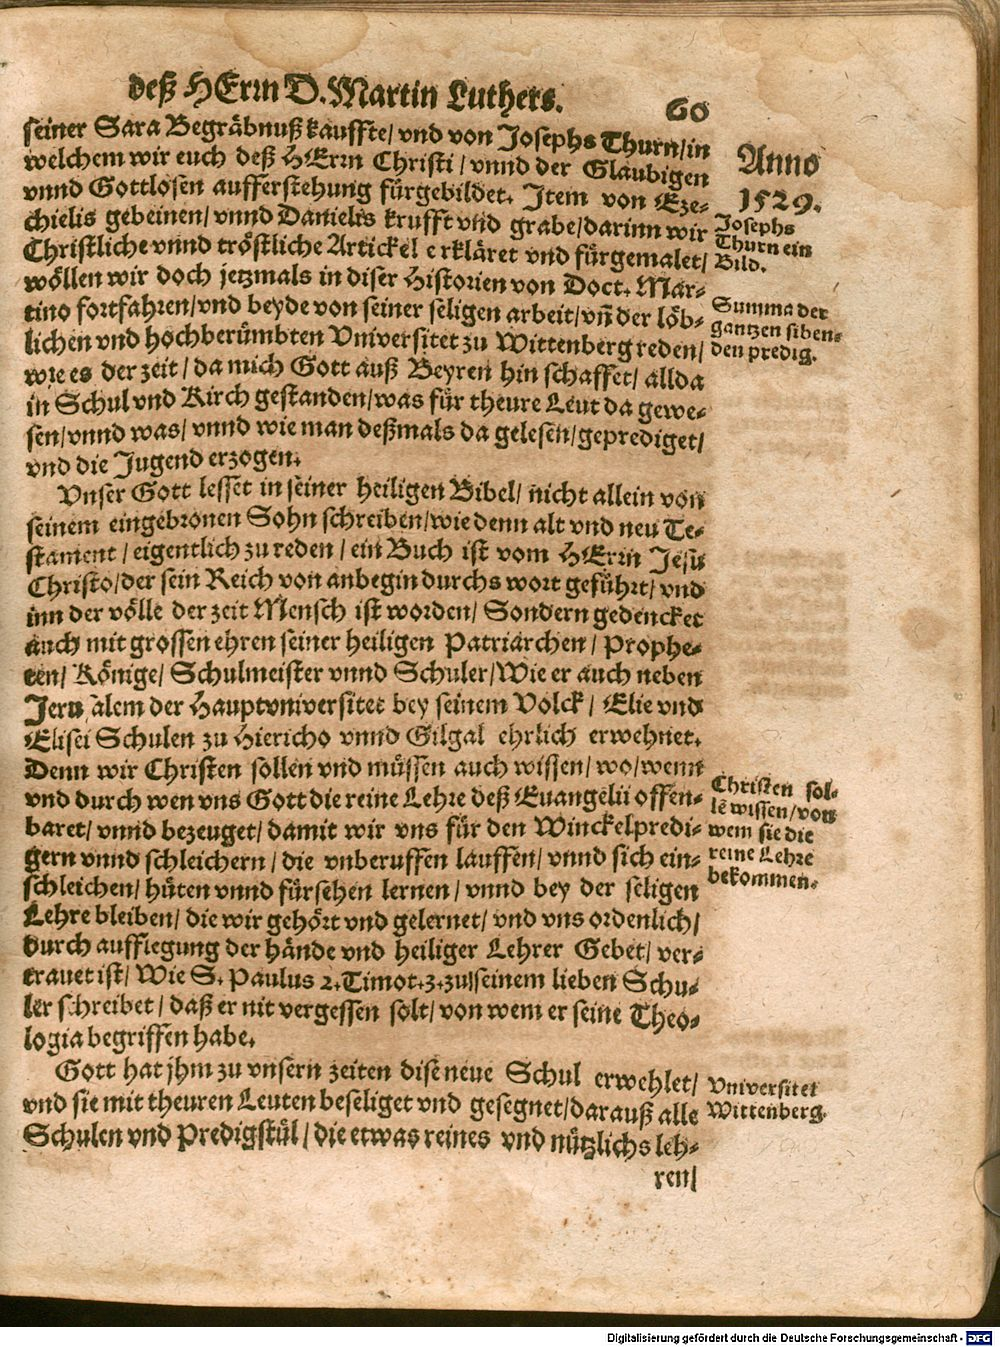 deß HErrn D. Martin Luthers. 60
seiner Sara Begräbnuß kauffte/ vnd von Josephs Thurn/ in
welchem wir euch deß HErrn Christi/ vnnd der Glaubigen
vnnd Gottlosen aufferstehung fürgebildet. Item von Eze-
chielis gebeinen/ vnnd Danielis krufft vnd grabe/ darinn wir
Christliche vnnd tröstliche Artickel erkläret vnd fürgemalet/
wöllen wir doch jetzmals in diser Historien von Doct. Mar-
tino fortfahren/ vnd beyde von seiner seligen arbeit/ vñ der löb-
lichen vnd hochberümbten Vniversitet zu Wittenberg reden/
wie es der zeit/ da mich Gott auß Beyren hin schaffet/ allda
in Schul vnd Kirch gestanden/ was für theure Leut da gewe-
sen/ vnnd was/ vnnd wie man deßmals da gelesen/ geprediget/
vnd die Jugend erzogen.
Vnser Gott lesset in seiner heiligen Bibel/ nicht allein von
seinem eingebronen Sohn schreiben/ wie denn alt vnd neu Te-
stament/ eigentlich zu reden/ ein Buch ist vom HErrn Jesu
Christo/ der sein Reich von anbegin durchs wort geführt/ vnd
inn der völle der zeit Mensch ist worden/ Sondern gedencket
auch mit grossen ehren seiner heiligen Patriarchen/ Prophe-
ten/ Könige/ Schulmeister vnnd Schuler/ Wie er auch neben
Jerusalem der Hauptvniversitet bey seinem Volck/ Elie vnd
Elisei Schulen zu Hiericho vnnd Gilgal ehrlich erwehnet.
Denn wir Christen sollen vnd müssen auch wissen/ wo/ wenn
vnd durch wen vns Gott die reine Lehre deß Euangelii offen-
baret/ vnnd bezeuget/ damit wir vns für den Winckelpredi-
gern vnnd schleichern/ die vnberuffen lauffen/ vnnd sich ein-
schleichen/ hüten vnnd fürsehen lernen/ vnnd bey der seligen
Lehre bleiben/ die wir gehört vnd gelernet/ vnd vns ordenlich/
durch aufflegung der hände vnd heiliger Lehrer Gebet/ ver-
trauet ist/ Wie S. Paulus 2. Timot. 3. zu seinem lieben Schu-
ler schreibet/ daß er nit vergessen solt/ von wem er seine Theo-
logia begriffen habe.
Gott hat jhm zu vnsern zeiten dise neue Schul erwehlet/
vnd sie mit theuren Leuten beseliget vnd gesegnet/ darauß alle
Schulen vnd Predigstül/ die etwas reines vnd nützlichs leh-
ren/
Anno
1529.
Josephs
Thurn ein
Bild.
Summa der
gantzen siben-
den predig.
Christen sol-
lē wissen/ von
wem sie die
reine Lehre
bekommen.
Vniversitet
Wittenberg.
Digitalisierung gefördert durch die Deutsche Forschungsgemeinschaft - DFG